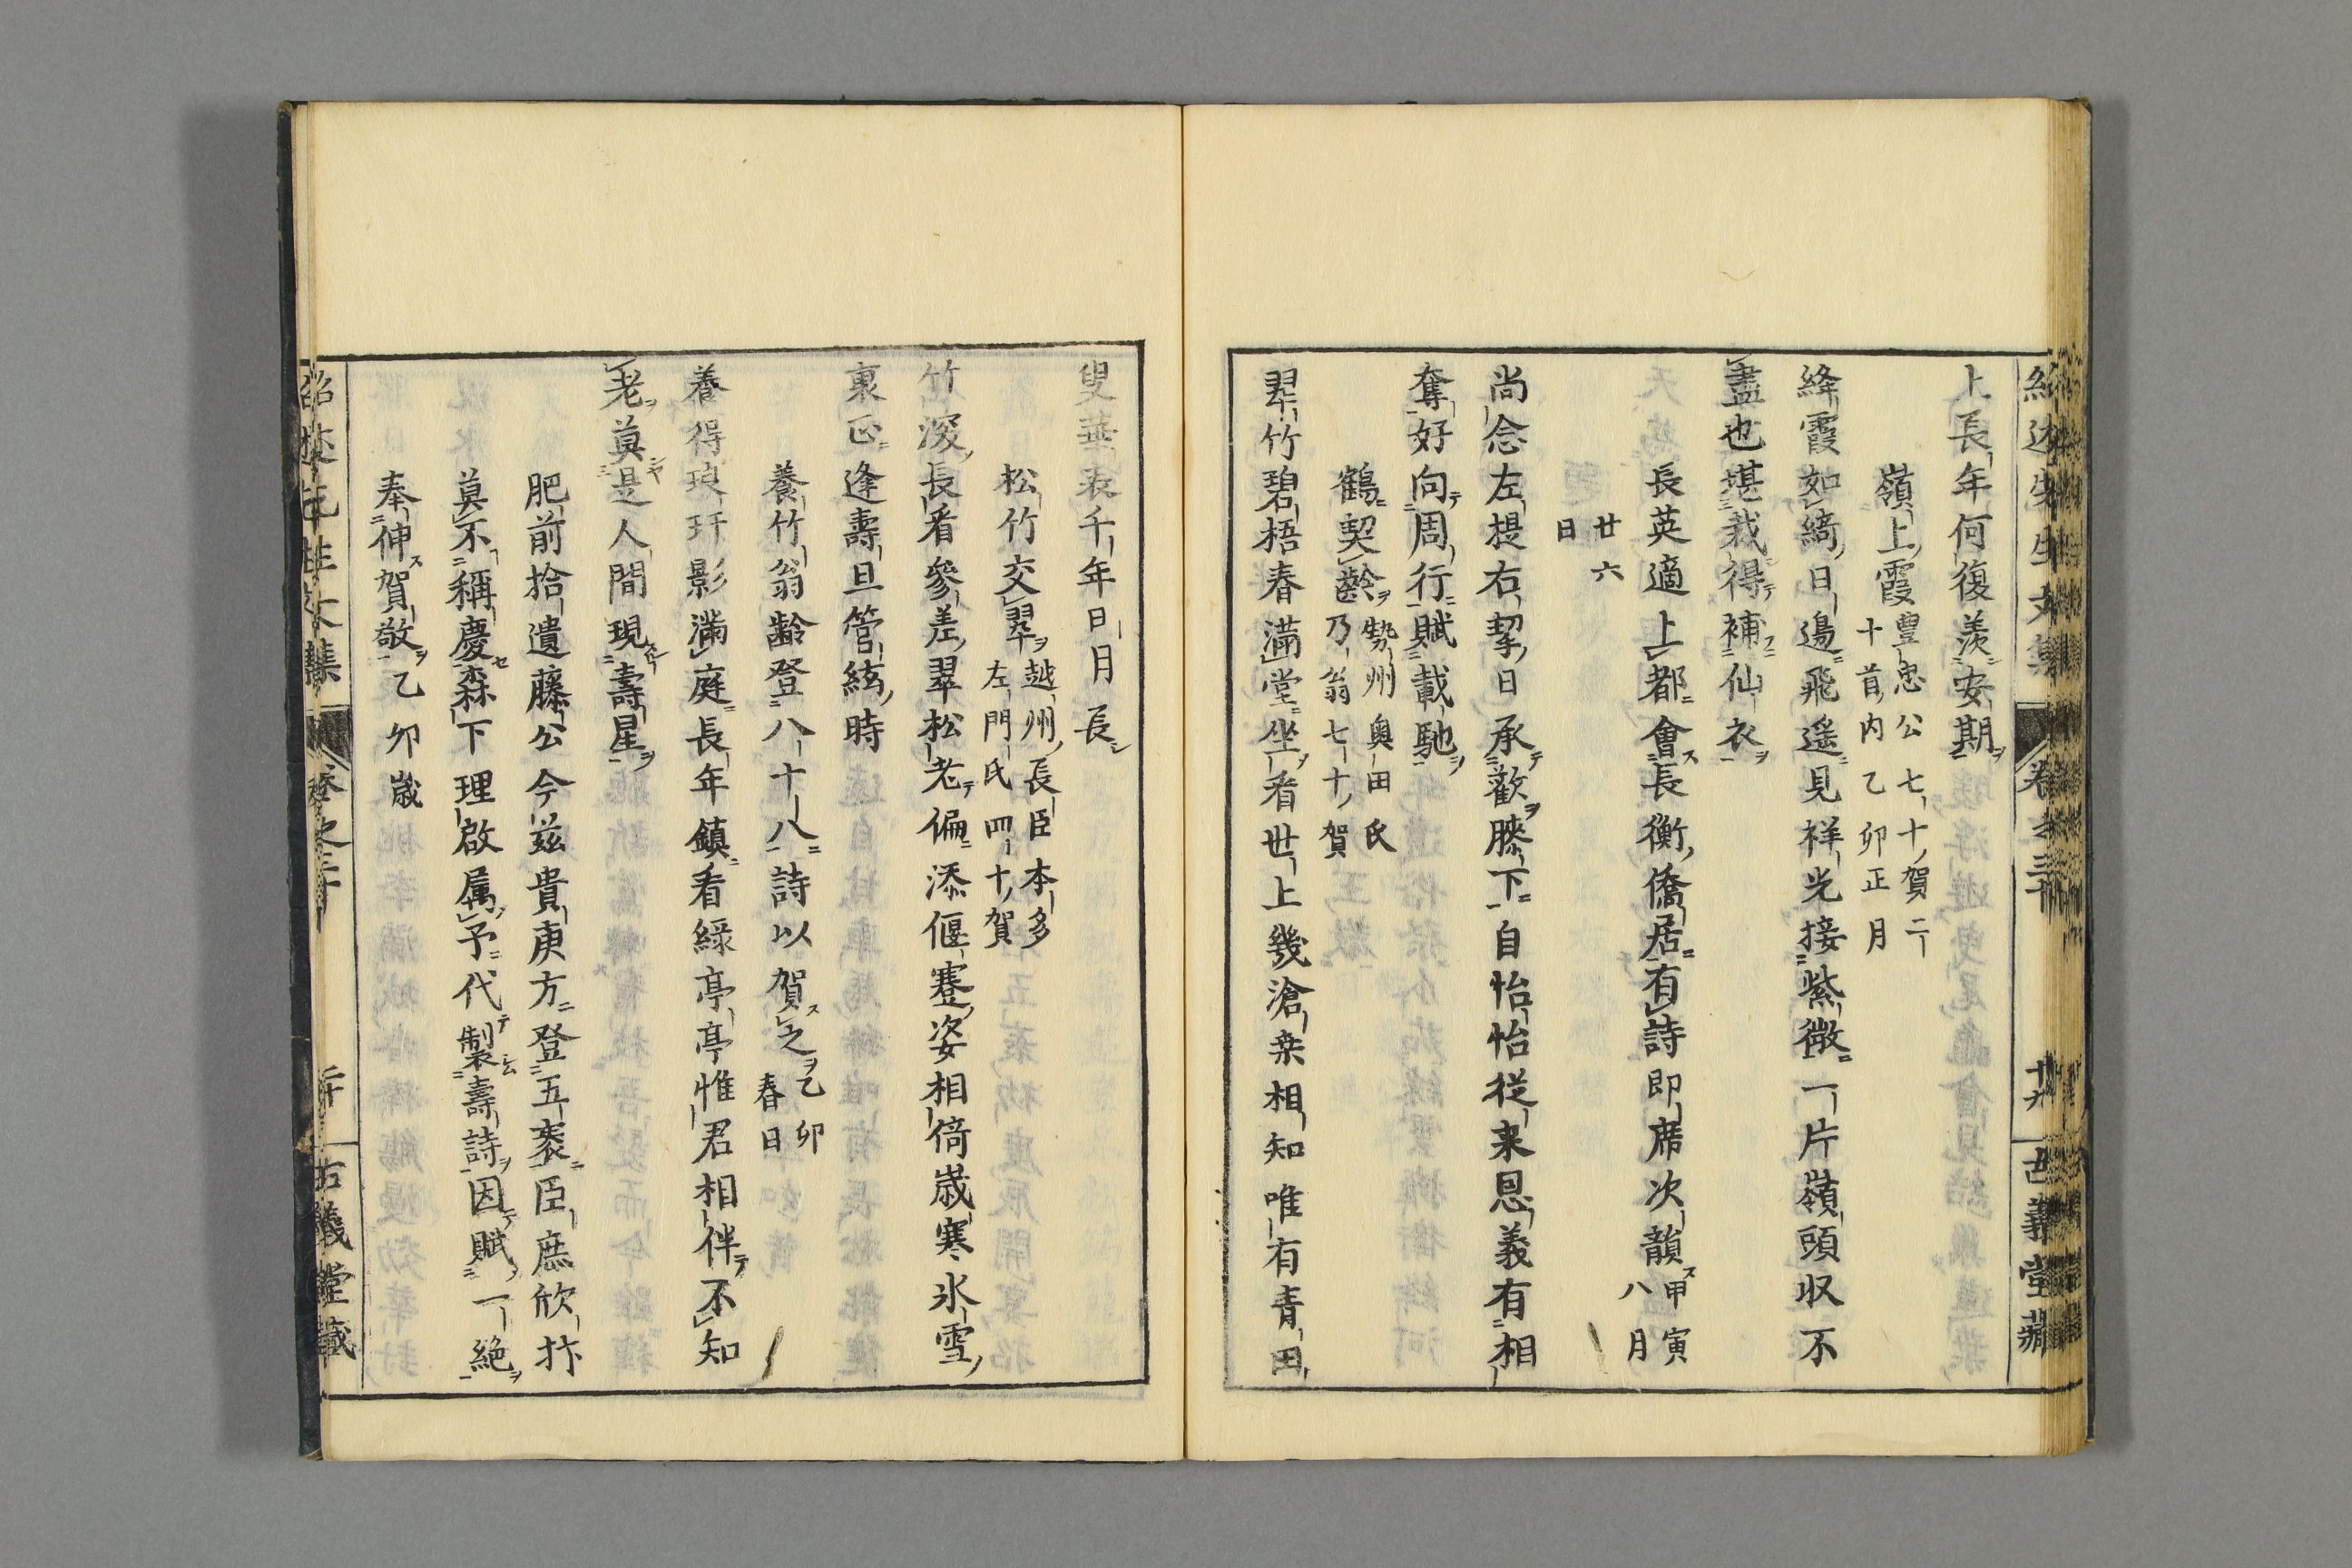 上長年何復羨安期
嶺上霞 豊忠公七十賀二
十首内乙卯正月
絳霞如綺日邉飛遥見祥光接紫微一片嶺頭収不
盡也堪裁得補仙衣
長英適上都會長衡僑居有詩即席次韻 甲寅
八月
廿六
日
尚念左提右挈日承歡膝下自怡怡従来恩義有相
奪好向周行賦載馳
鶴契齢 勢州奥田氏
乃翁七十賀
翠竹碧梧春満堂坐看世上幾滄桒相知唯有青田
叟華表千年日月長
松竹交翠 越州長臣本多
左門氏四十賀
竹深長看參差翠松老偏添偃蹇姿相倚歳寒氷雪
裏正逢壽旦管絃時
養竹翁齢登八十八詩以賀之 乙卯
春日
養得琅玕影満庭長年鎮看緑亭亭惟君相伴不知
老莫是人間現壽星
肥前拾遺藤公今茲貴庚方登五袠臣庶欣抃
莫不稱慶森下理啟属予代製壽詩因賦一絶
奉伸賀敬 乙卯歳
紹述先生文集 卷之三十 十九 古義堂藏
紹述先生文集 卷之三十 古義堂藏